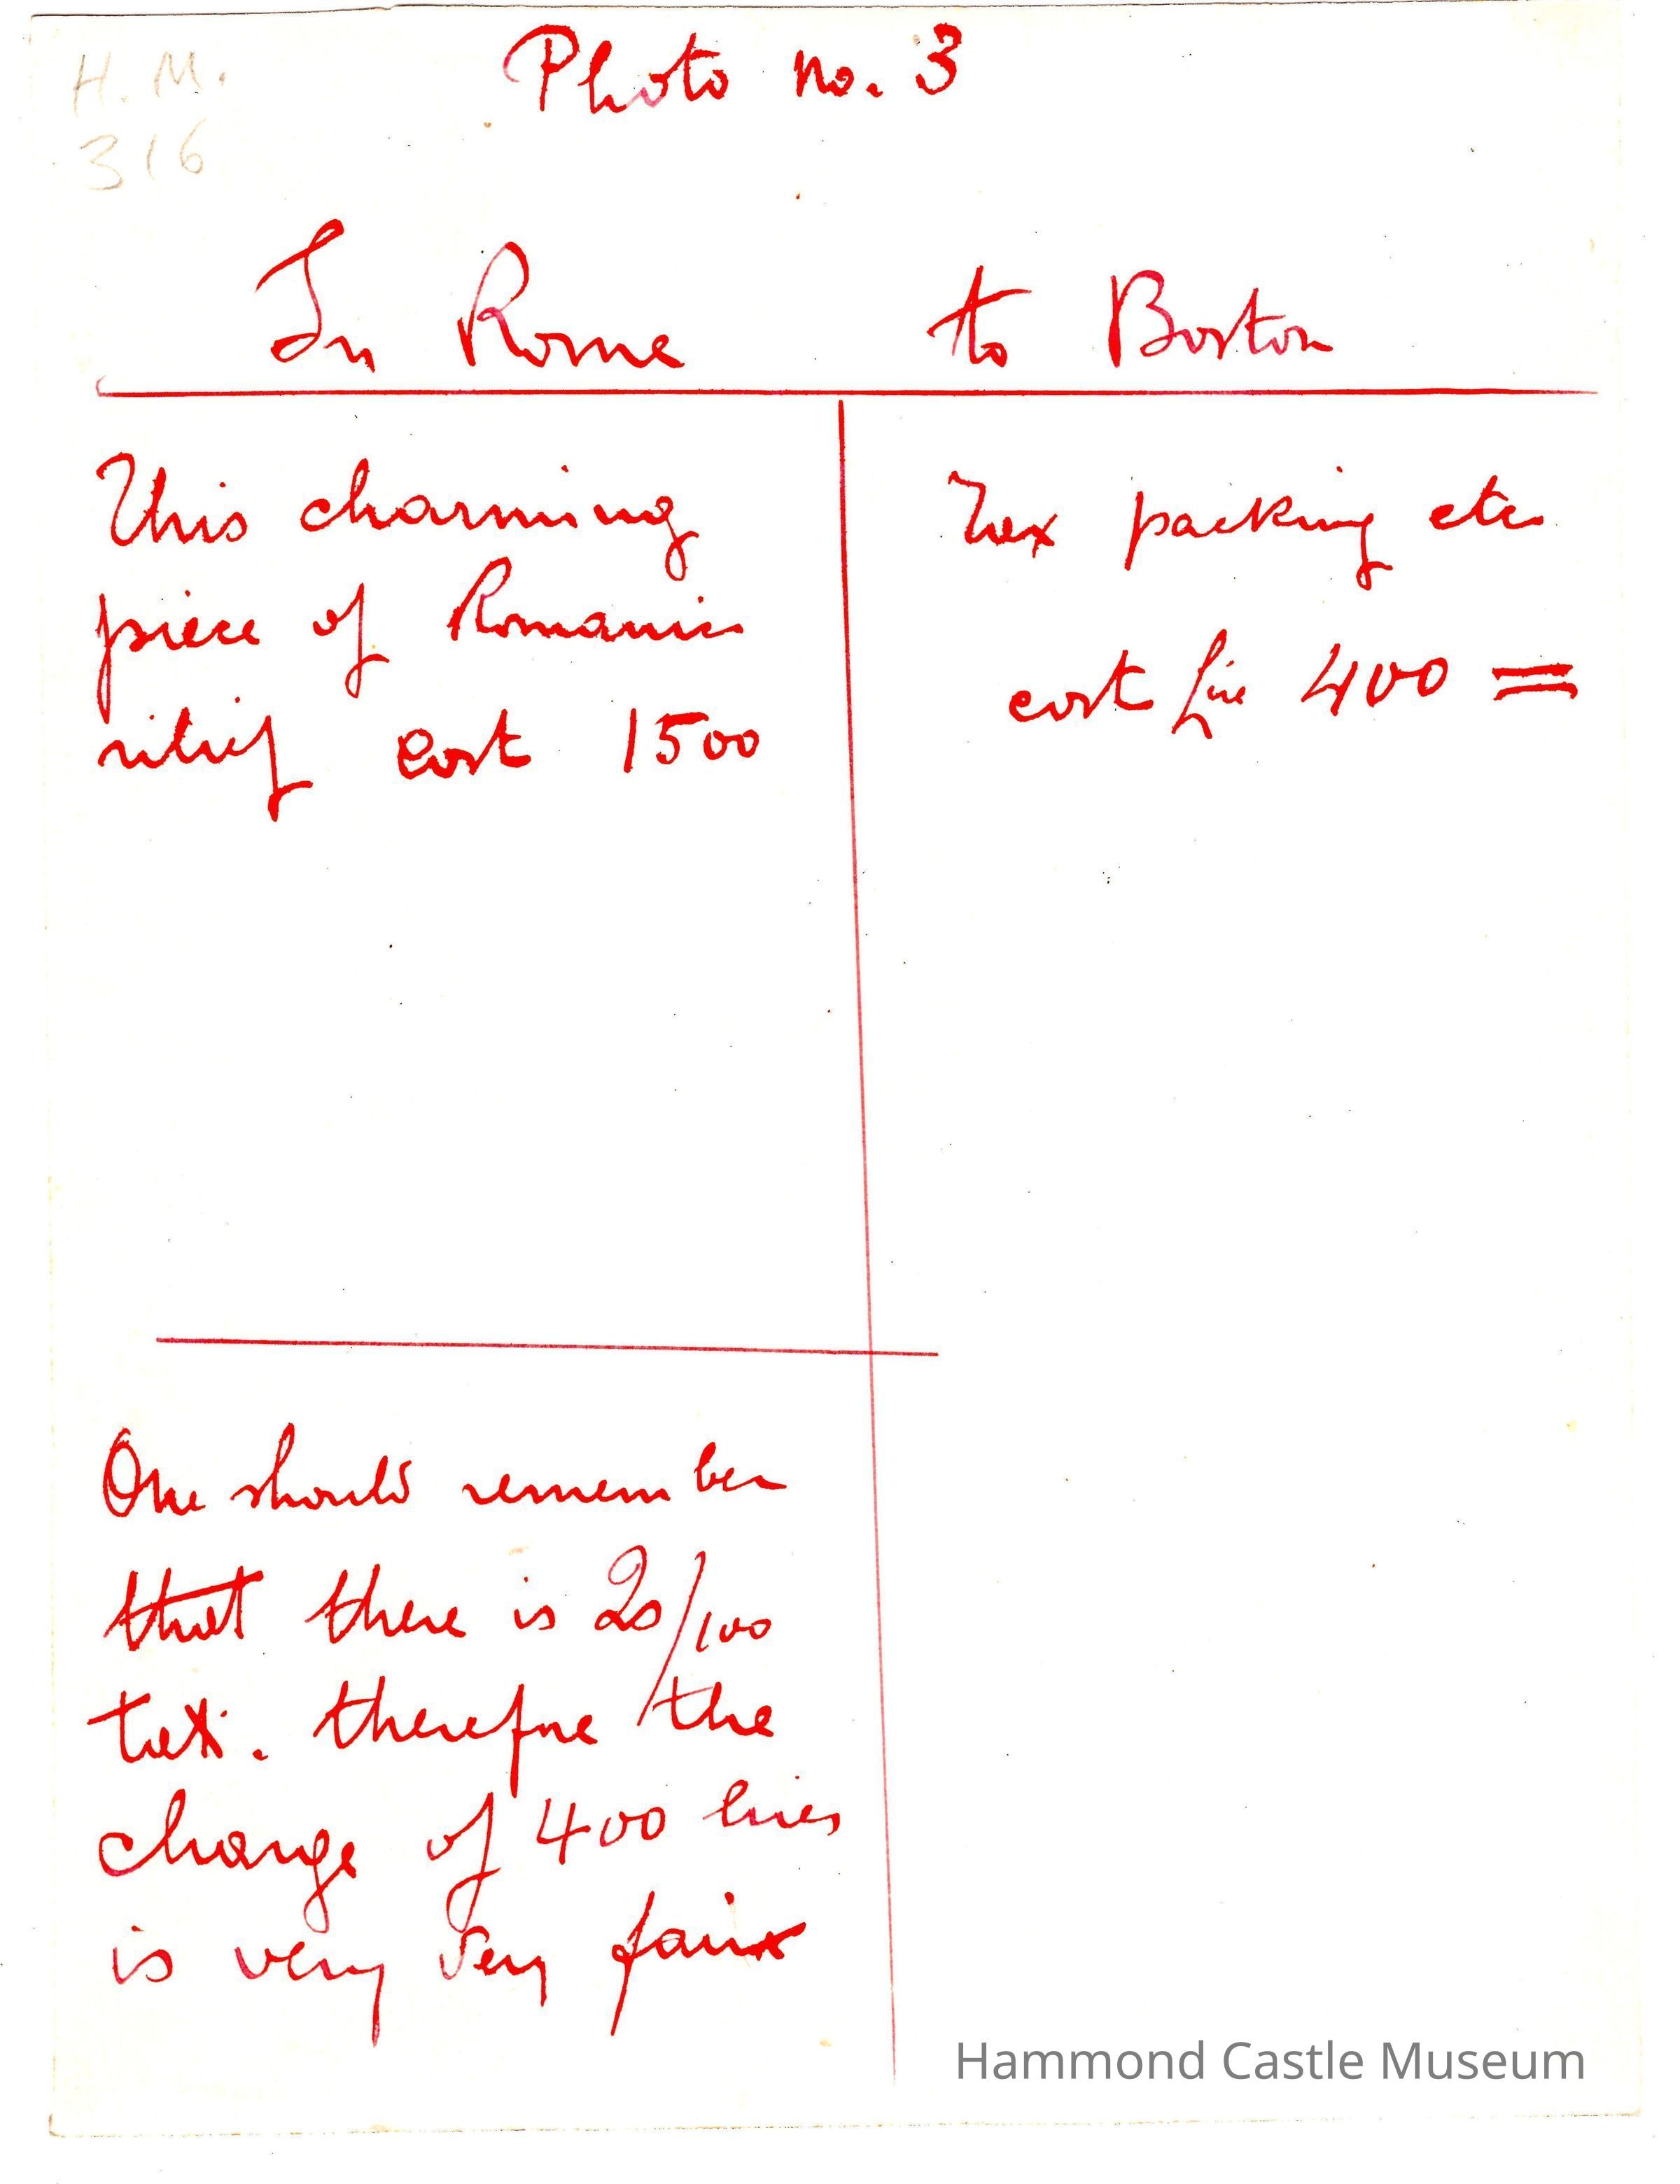 H. M.
316
Photo no. 3
In Rome
to Boston
This charming
piece of Romanic
relief cost 1500
Tax packing etc
cost for 400 =
One should remember
that there is 20/100
tax. therefore the
charge of 400 lires
is very very fair
Hammond Castle Museum